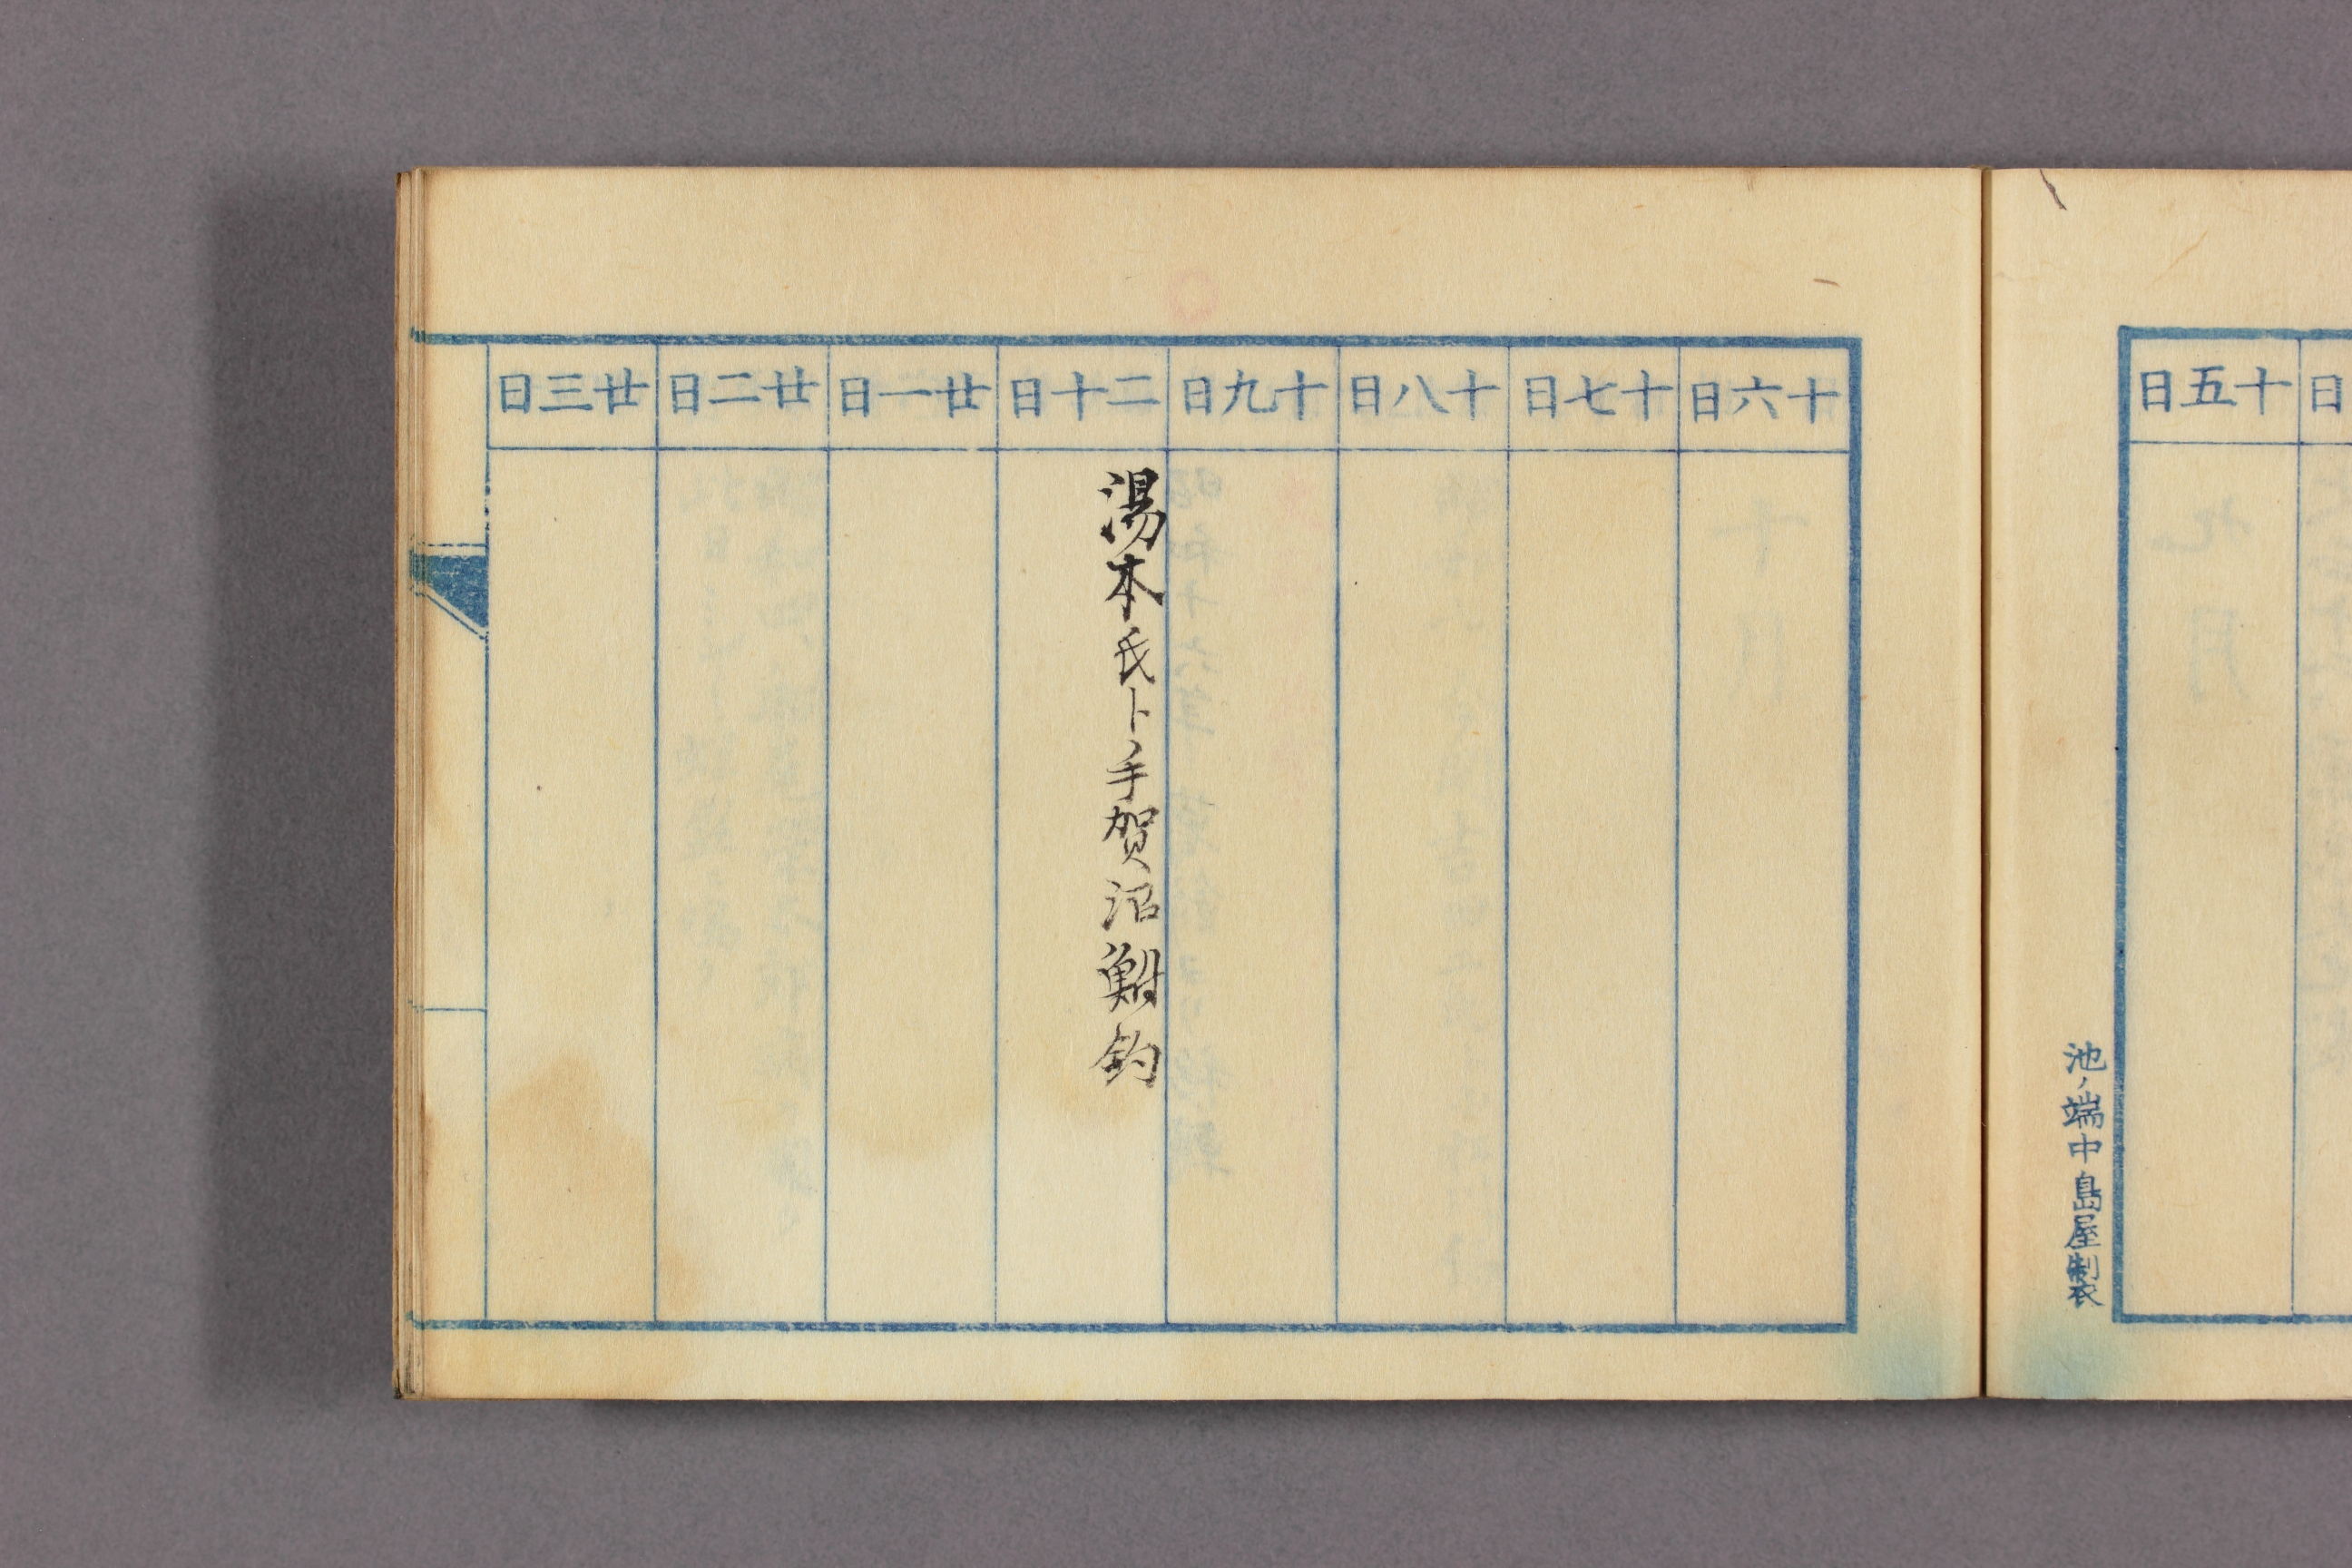 十五日
池ノ端中島屋製
十六日
十七日
十八日
十九日
二十日
湯本氏ト手賀沼鮒釣
廿一日
廿二日
廿三日